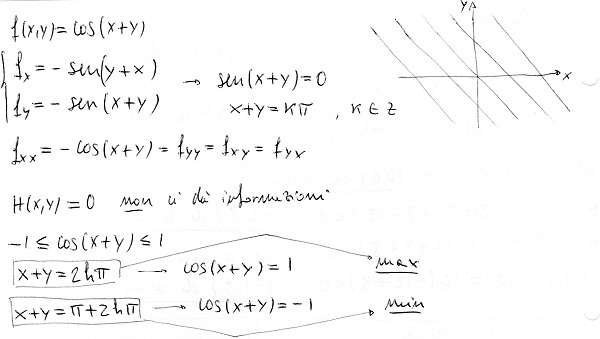 f(x,y) = cos(x+y)
y
x
fx = - sen(y+x)
→ sen(x+y) = 0
fy = - sen(x+y)
x+y = kπ , k ∈ Z
fxx = - cos(x+y) = fyy = fxy = fyx
H(x,y) = 0 non ci dà informazioni
-1 ≤ cos(x+y) ≤ 1
x+y = 2hπ → cos(x+y) = 1 max
x+y = π+2hπ → cos(x+y) = -1 min